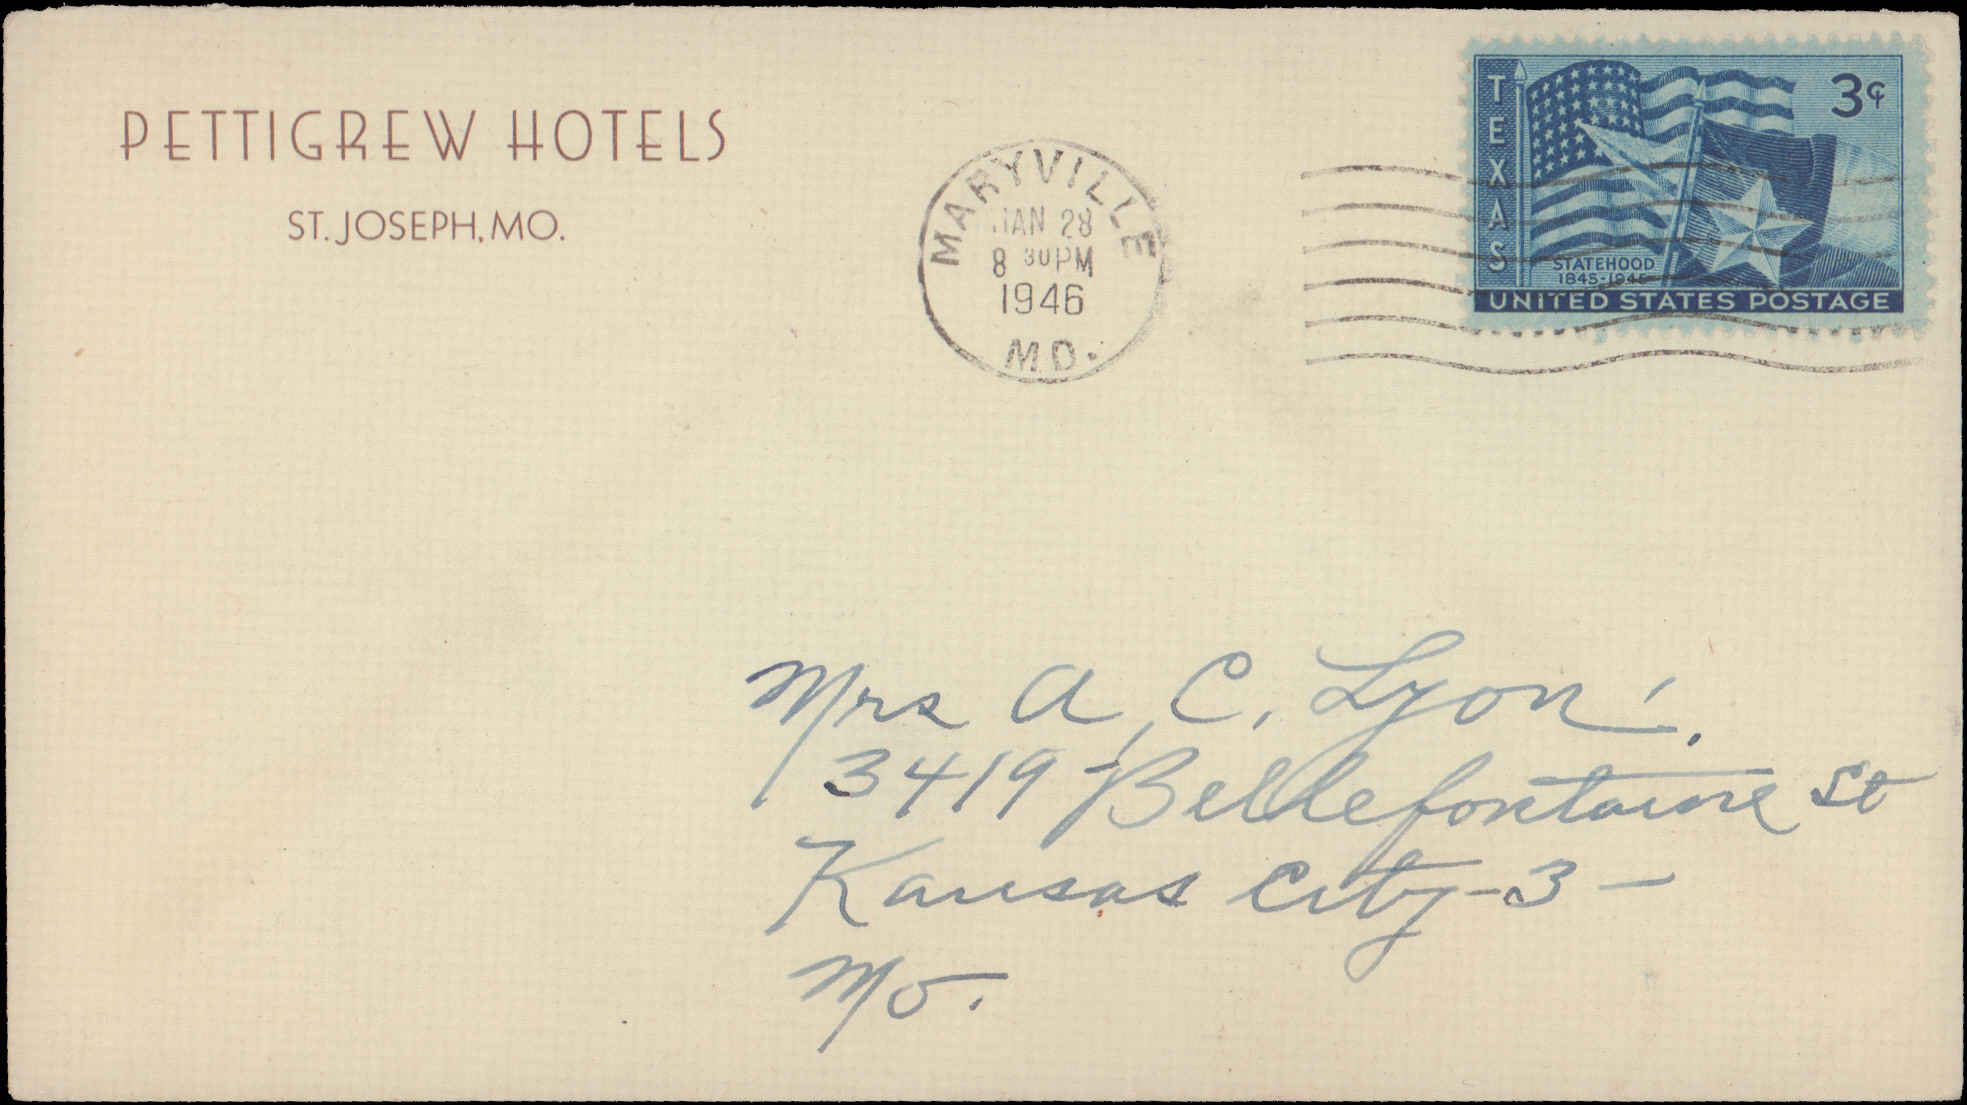 PETTIGREW HOTELS
ST. JOSEPH, MO.
MARYVILLE
JAN 28
8 30 PM
1946
MO.
TEXAS
3¢
STATEHOOD
1845-1945
UNITED STATES POSTAGE
Mrs A. C. Lyon.
3419 - Bellefontaine St
Kansas City - 3 -
Mo.